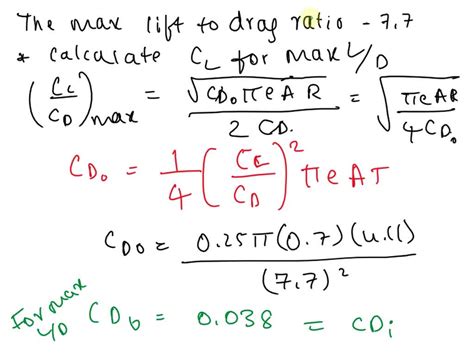 The max lift to drag ratio - 7.7
* calculate CL for max L/D
(CL/CD)max = √(CD₀πeAR) / 2CD₀ = √(πeAR / 4CD₀)
CD₀ = 1/4 (CL/CD)² πeAT
CD0 = 0.25π(0.7)(4.11) / (7.7)²
For max L/D CD₀ = 0.038 = CDi